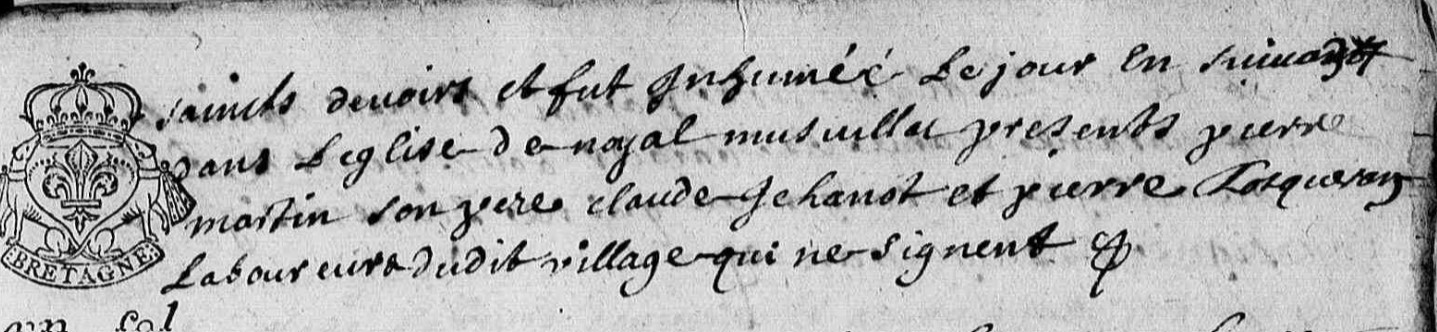 saincts devoirs et fut Inhumée Le jour En suivant
dans L'eglise de noyal musuillac presents pierre
martin son pere claude Jehanot et pierre
BRETAGNE
Laboureurs dudit village qui ne signent
un sol